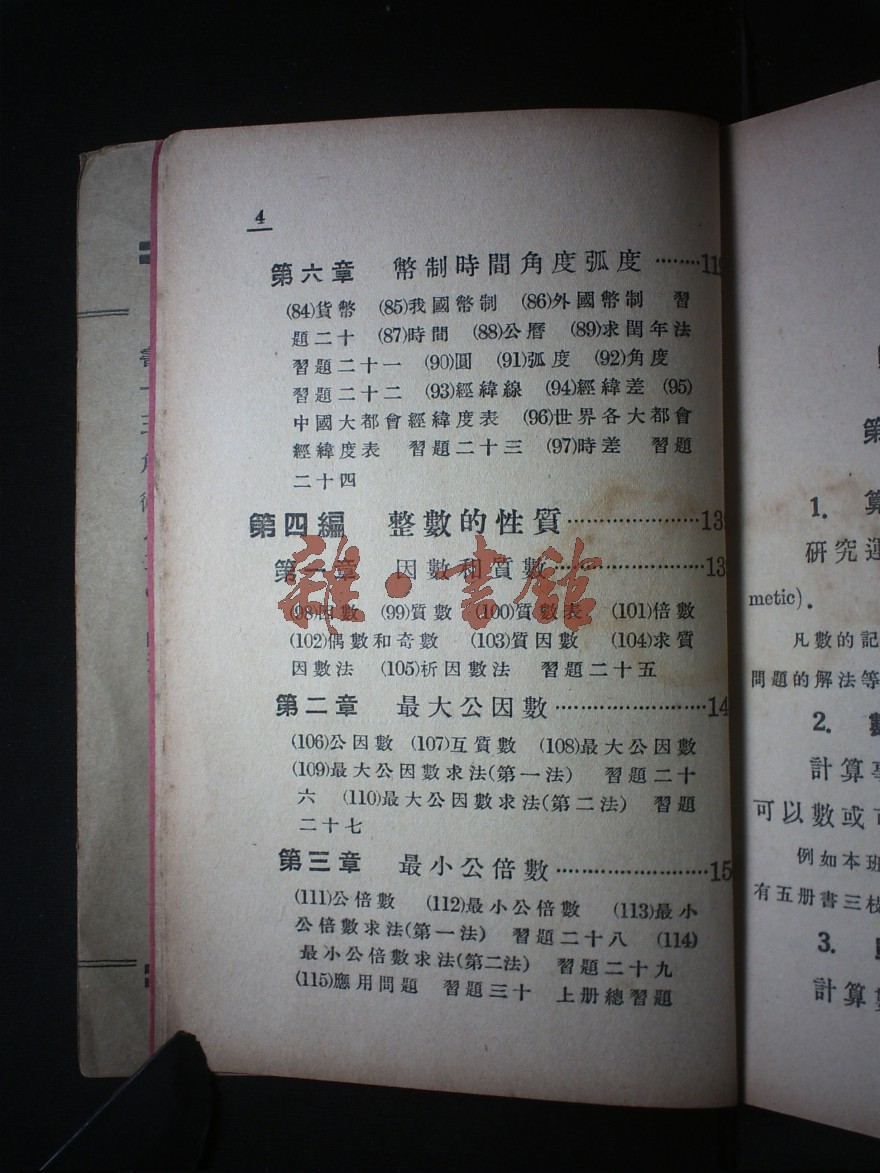 4
第六章 幣制時間角度弧度………11
(84)貨幣 (85)我國幣制 (86)外國幣制 習
題二十 (87)時間 (88)公曆 (89)求閏年法
習題二十一 (90)圓 (91)弧度 (92)角度
習題二十二 (93)經緯線 (94)經緯差 (95)
中國大都會經緯度表 (96)世界各大都會
經緯度表 習題二十三 (97)時差 習題
二十四
第四編 整數的性質…………………13
第一章 因數和質數…………………13
(98)因數 (99)質數 (100)質數表 (101)倍數
(102)偶數和奇數 (103)質因數 (104)求質
因數法 (105)析因數法 習題二十五
第二章 最大公因數…………………14
(106)公因數 (107)互質數 (108)最大公因數
(109)最大公因數求法(第一法) 習題二十
六 (110)最大公因數求法(第二法) 習題
二十七
第三章 最小公倍數…………………15
(111)公倍數 (112)最小公倍數 (113)最小
公倍數求法(第一法) 習題二十八 (114)
最小公倍數求法(第二法) 習題二十九
(115)應用問題 習題三十 上册總習題
雜·書館
第
1. 算
研究運
metic).
凡數的記
問題的解法等
2. 數
計算事
可以數或
例如本班
有五册書三枝
3.
計算